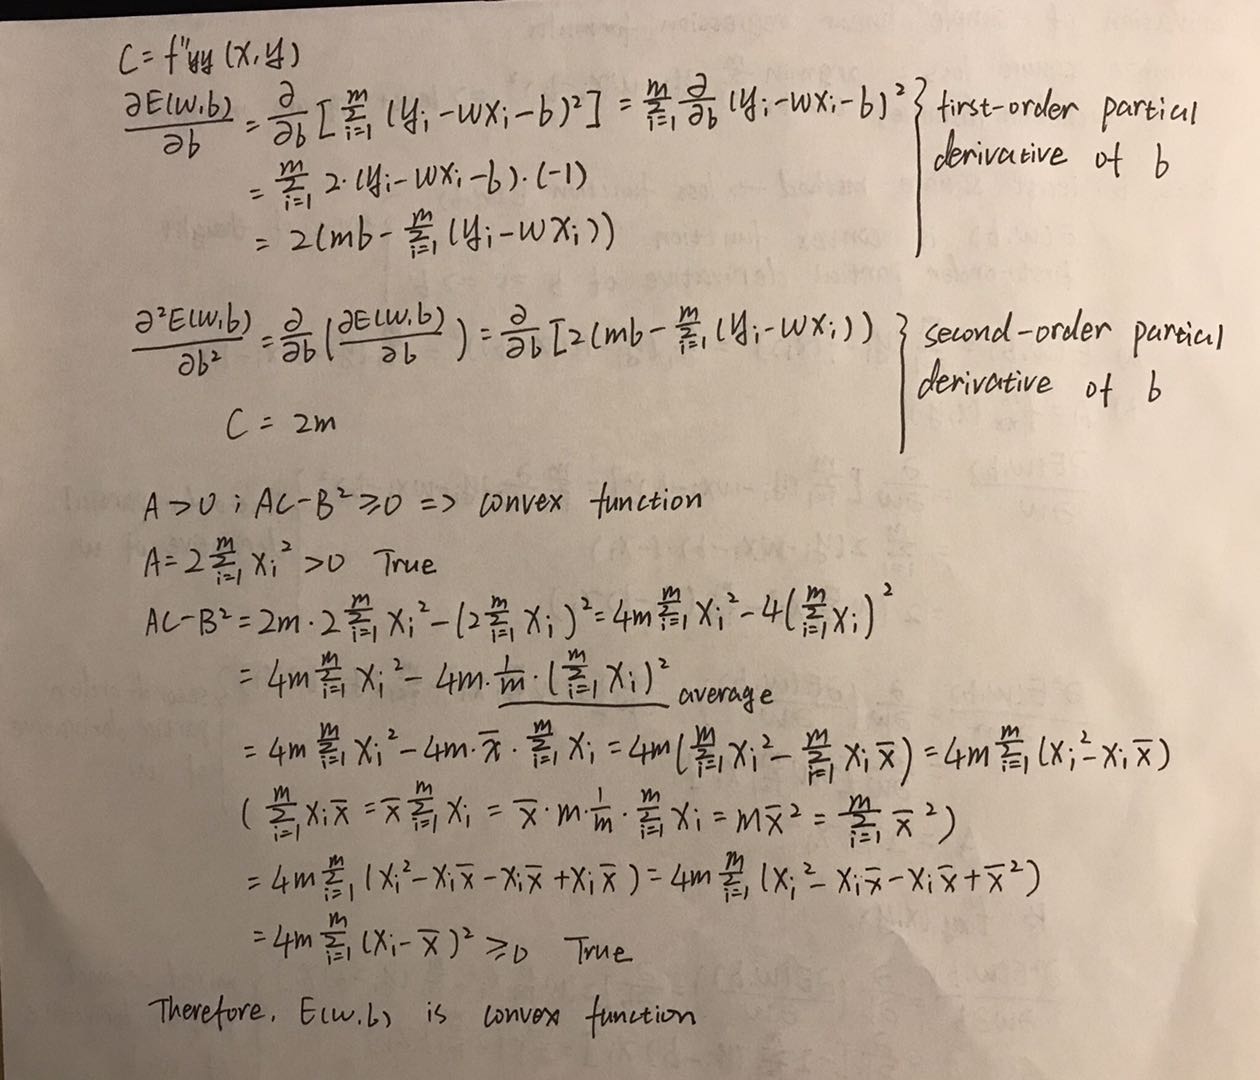 C = f''yy (x, y)
∂E(w,b)/∂b = ∂/∂b [ Σ_{i=1}^{m} (y_i - wx_i - b)² ] = Σ_{i=1}^{m} ∂/∂b (y_i - wx_i - b)² } first-order partial derivative of b
= Σ_{i=1}^{m} 2·(y_i - wx_i - b)·(-1)
= 2(mb - Σ_{i=1}^{m} (y_i - wx_i))
∂²E(w,b)/∂b² = ∂/∂b ( ∂E(w,b)/∂b ) = ∂/∂b [2(mb - Σ_{i=1}^{m} (y_i - wx_i)) } second-order partial derivative of b
C = 2m
A > 0 ; AC - B² ≥ 0 => convex function
A = 2 Σ_{i=1}^{m} x_i² > 0 True
AC - B² = 2m · 2 Σ_{i=1}^{m} x_i² - (2 Σ_{i=1}^{m} x_i)² = 4m Σ_{i=1}^{m} x_i² - 4( Σ_{i=1}^{m} x_i )²
= 4m Σ_{i=1}^{m} x_i² - 4m · 1/m · ( Σ_{i=1}^{m} x_i )² average
= 4m Σ_{i=1}^{m} x_i² - 4m · x̄ · Σ_{i=1}^{m} x_i = 4m( Σ_{i=1}^{m} x_i² - Σ_{i=1}^{m} x_i x̄ ) = 4m Σ_{i=1}^{m} (x_i² - x_i x̄)
( Σ_{i=1}^{m} x_i x̄ = x̄ Σ_{i=1}^{m} x_i = x̄ · m · 1/m · Σ_{i=1}^{m} x_i = m x̄² = Σ_{i=1}^{m} x̄² )
= 4m Σ_{i=1}^{m} (x_i² - x_i x̄ - x_i x̄ + x_i x̄) = 4m Σ_{i=1}^{m} (x_i² - x_i x̄ - x_i x̄ + x̄²)
= 4m Σ_{i=1}^{m} (x_i - x̄)² ≥ 0 True
Therefore, E(w,b) is convex function